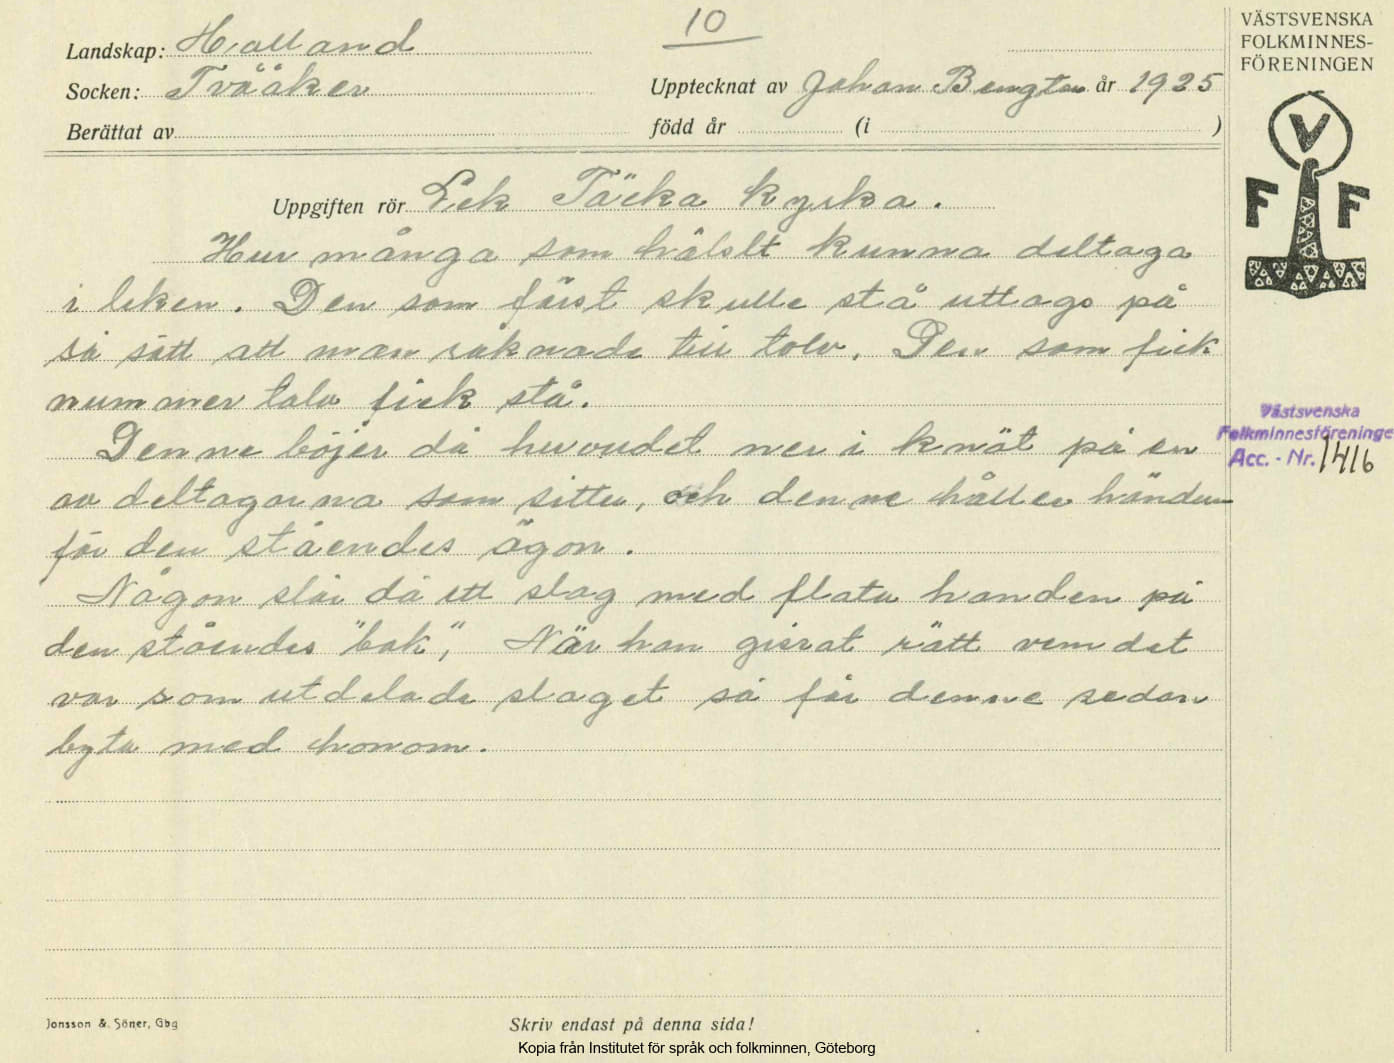 10
VÄSTSVENSKA
FOLKMINNES-
FÖRENINGEN
Landskap: Halland
Socken: Tvååker
Upptecknat av Johan Bengtson år 1925
Berättat av
född år (i )
V
F F
Uppgiften rör Lek Täcka kyrka.
Hur många som hälslt kunna deltaga
i leken. Den som först skulle stå uttags på
så sätt att man räknade till tolv. Den som fick
nummer tolv fick stå.
Denne böjer då huvudet ner i knät på en
av deltagarna som sitter, och denne håller händer
för den ståendes ögon.
Någon slår då ett slag med flata handen på
den ståendes "bak", När han gissat rätt vem det
var som utdelade slaget så får denne sedan
byta med honom.
Västsvenska
Folkminnesföreninge
Acc. - Nr. 1416
Jonsson & Söner, Gbg
Skriv endast på denna sida!
Kopia från Institutet för språk och folkminnen, Göteborg